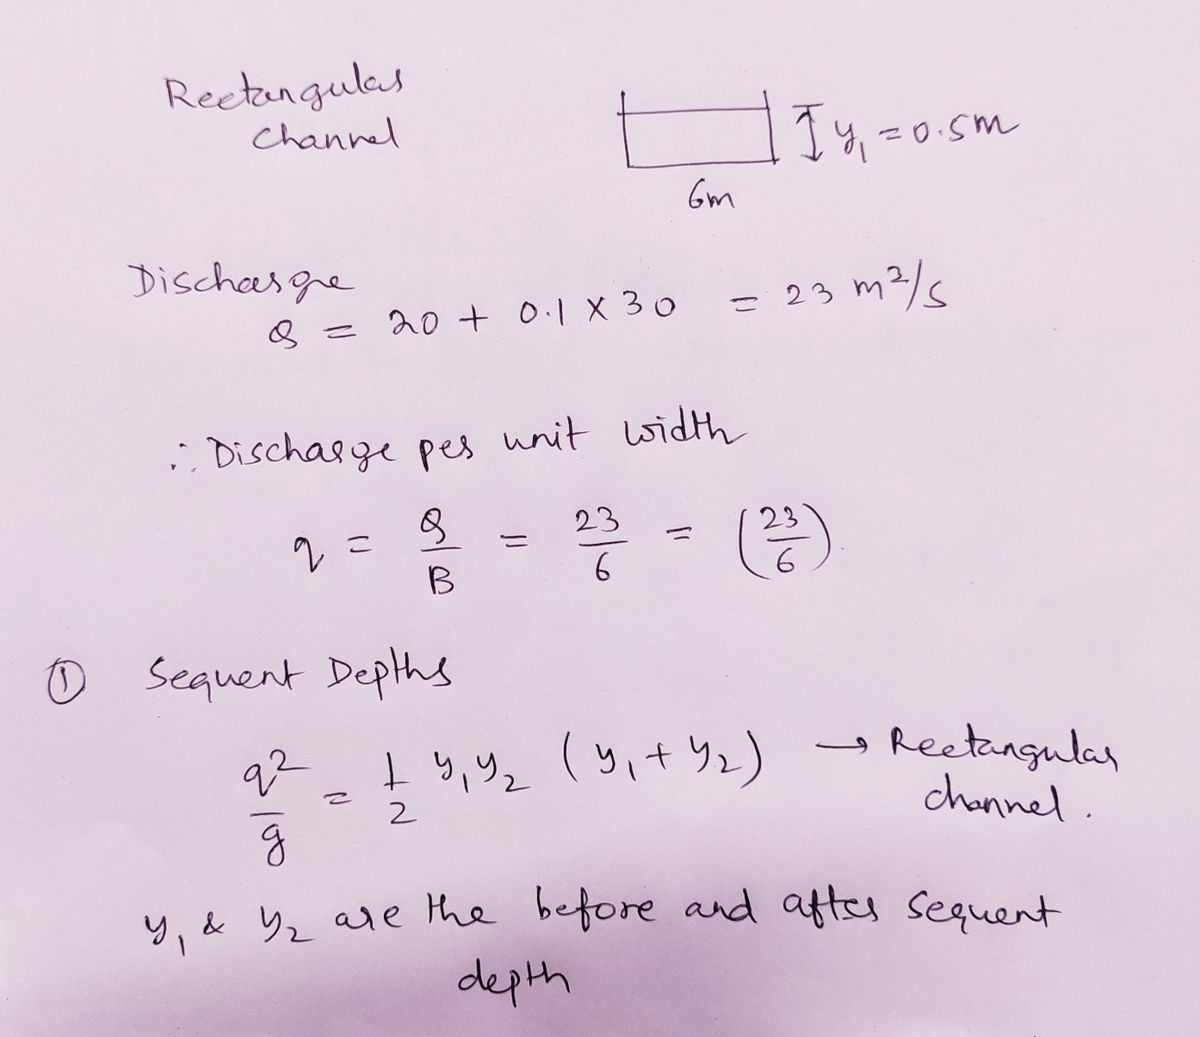 Rectangular
channel
y₁ = 0.5m
6m
Discharge
Q = 20 + 0.1 × 30 = 23 m³/s
∴ Discharge per unit width
q = Q/B = 23/6 = (23/6)
① Sequent Depths
q²/g = 1/2 y₁y₂ (y₁ + y₂) → Rectangular
channel.
y₁ & y₂ are the before and after sequent
depth